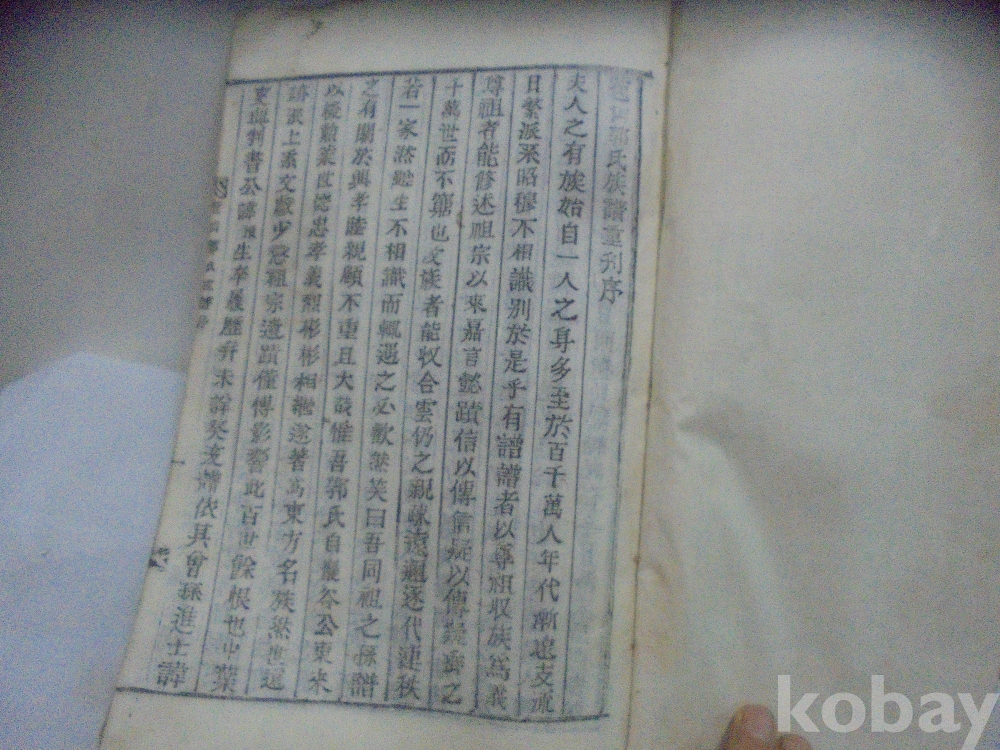 氏族譜重刊序
夫人之有族始自一人之身多至於百千萬人年代漸遠支流
日繁派系昭穆不相識別於是乎有譜譜者以尊祖收族爲義
尊祖者能修述祖宗以來嘉言懿蹟信以傳信疑以傳疑垂之
十萬世而不窮也收族者能收合雲仍之親疎遠邇逐代連秩
若一家然雖生不相識而輒遇之必歡然笑曰吾同祖之孫譜
之有關於興孝睦親顧不重且大哉惟吾郭氏自巖谷公東來
以後勳業世德忠孝義烈彬彬相繼遂著爲東方名族然世遠
跡泯上系文獻少愆祖宗遺蹟僅傳影響此百世餘恨也中葉
判書公諱 生卒履歷 未詳癸亥譜依其曾孫進士諱
kobay